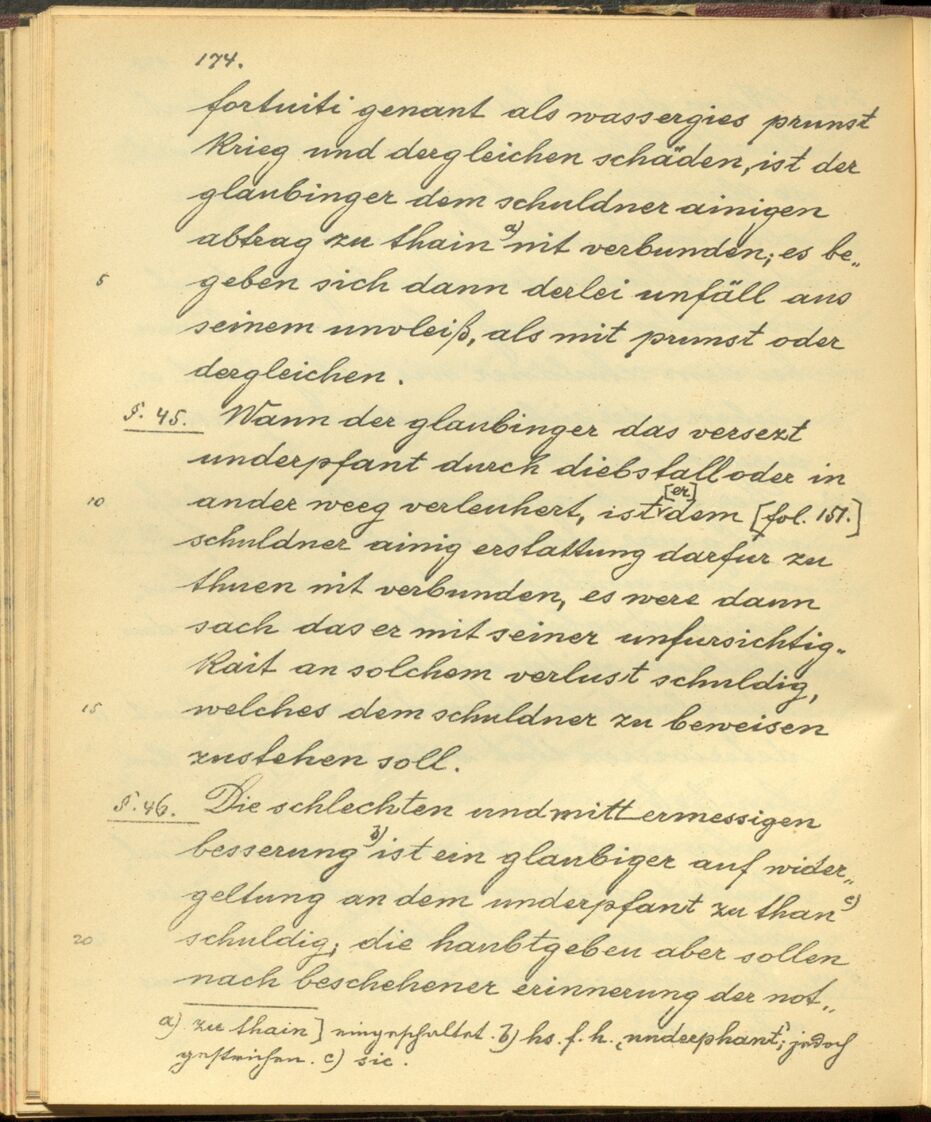 174.
fortuiti genant als wassergies prunst
Krieg und dergleichen schäden, ist der
glaubinger dem schuldner ainigen
abtrag zu thain a) nit verbunden; es be„
5 geben sich dann derlei unfäll aus
seinem unvleiß, als mit prunst oder
dergleichen.
§. 45. Wann der glaubinger das versezt
underpfant durch diebstall oder in
10 ander weeg verleuhert, ist [er] dem [fol. 151.]
schuldner ainig erstattung darfür zu
thuen nit verbunden, es were dann
sach das er mit seiner unfursichtig„
Kait an solchem verlust schuldig,
15 welches dem schuldner zu beweisen
zustehen soll.
§. 46. Die schlechten und mittermessigen
besserung b) ist ein glaubiger auf wider„
geltung an dem underpfant zu than c)
20 schuldig; die haubtgebeu aber sollen
nach beschehener erinnerung der not„
a) zu thain] eingeschaltet. b) hs. f. h. „underphant“; jedoch
gestrichen. c) sic.